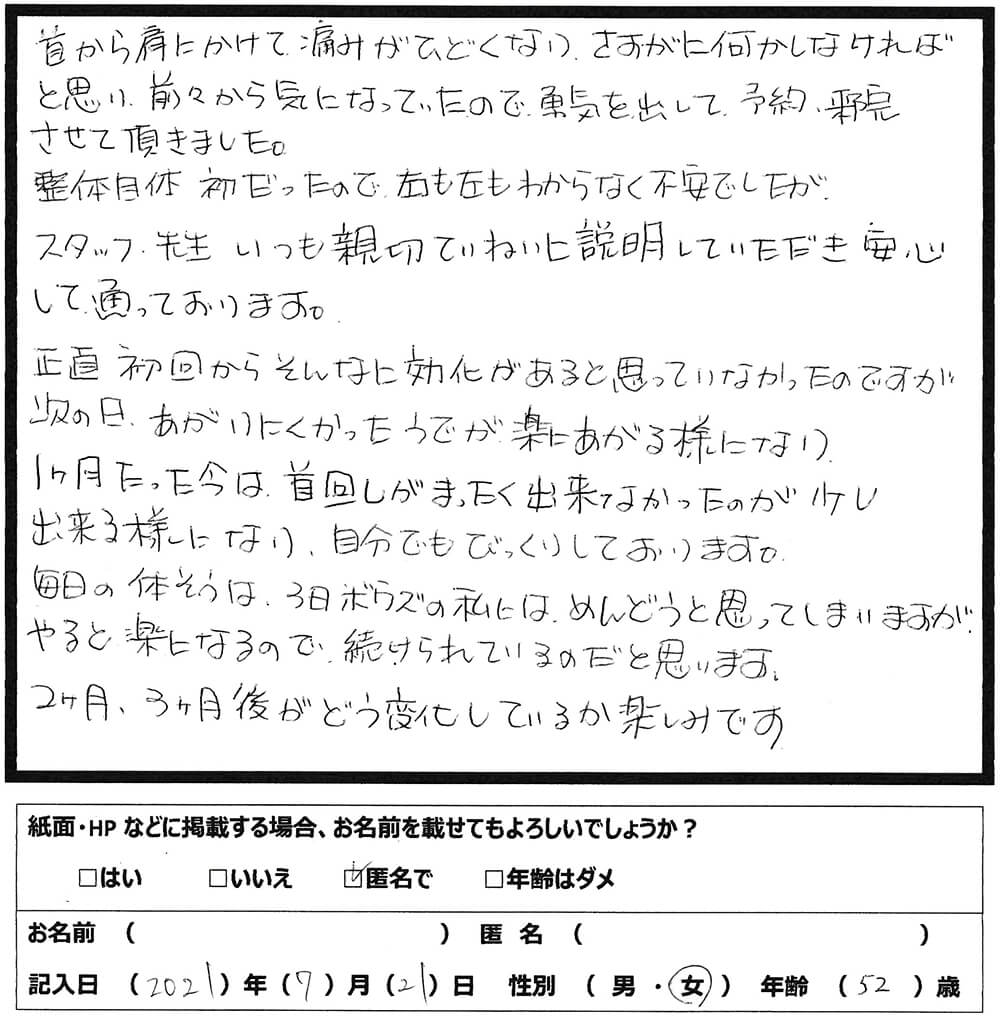 首から肩にかけて、痛みがひどくなり、さすがに何かしなければ
と思い、前々から気になっていたので、勇気を出して、予約、来院
させて頂きました。
整体自体 初だったので、右も左もわからなく不安でしたが、
スタッフ・先生 いつも親切ていねいに説明していただき 安心
して、通っております。
正直 初回からそんなに効化があると思っていなかったのですが
次の日、あがりにくかったうでが、楽にあがる様になり、
1ヶ月たった今は、首回しがまったく出来なかったのが 少し
出来る様になり、自分でもびっくりしております。
毎日の体そうは、3日ボウズの私には、めんどうと思ってしまいますが、
やると楽になるので、続けられているのだと思います。
2ヶ月、3ヶ月後がどう変化しているか楽しみです
紙面・HP などに掲載する場合、お名前を載せてもよろしいでしょうか？
□はい □いいえ ☑匿名で □年齢はダメ
お名前 （ ） 匿 名 （ ）
記入日 （2021）年（7）月（21）日 性別 （ 男 ・ 女 ） 年齢 （ 52 ）歳